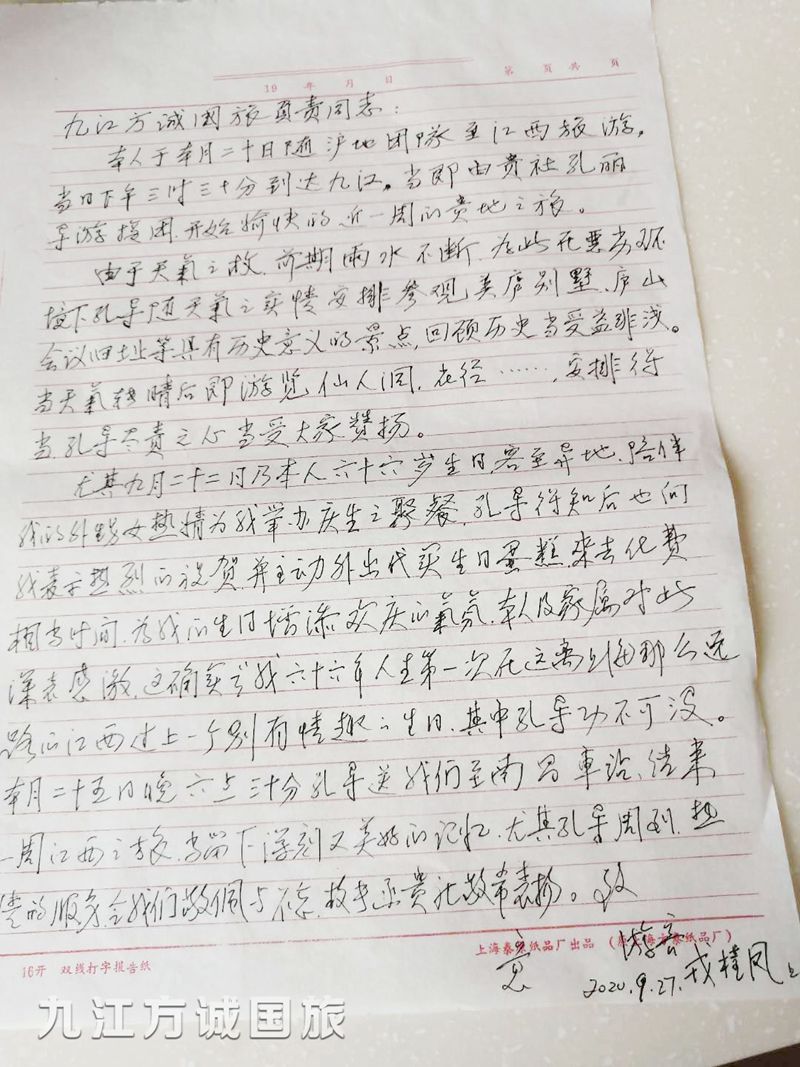 19 年 月 日 第 页 共 页
九江方诚国旅负责同志：
本人于本月二十日随沪地团队至江西旅游，
当日下午三时三十分到达九江。当即由贵社孔丽
导游接团，开始愉快的近一周的贵地之旅。
由于天气之故，前期雨水不断，为此在恶劣环
境下孔导随天气之实情安排参观美庐别墅、庐山
会议旧址等具有历史意义的景点，回顾历史当受益非浅。
当天气转晴后即游览仙人洞，花径……，安排得
当，孔导尽责之心当受大家赞扬。
尤其九月二十二日乃本人六十六岁生日，客至异地，陪伴
我的外甥女热情为我举办庆生之聚餐，孔导得知后也向
我表示热烈的祝贺，并主动外出代买生日蛋糕，来去化费
相当时间，为我的生日增添欢庆的氣氛，本人及家属对此
深表感激，这确实当我六十六年人生第一次在这离沪那么远
路的江西过上一个别有情趣之生日，其中孔导功不可没。
本月二十五日晚六点三十分孔导送我们至南昌車站，结束
一周江西之旅，当留下深刻又美好的记忆，尤其孔导周到、热
情的服务令我们敬佩与不忘，故书函贵社敬希表扬。致
意
游客
2020.9.27. 戎桂凤上
16开 双线打字报告纸
上海泰 纸品厂出品
九江方诚国旅